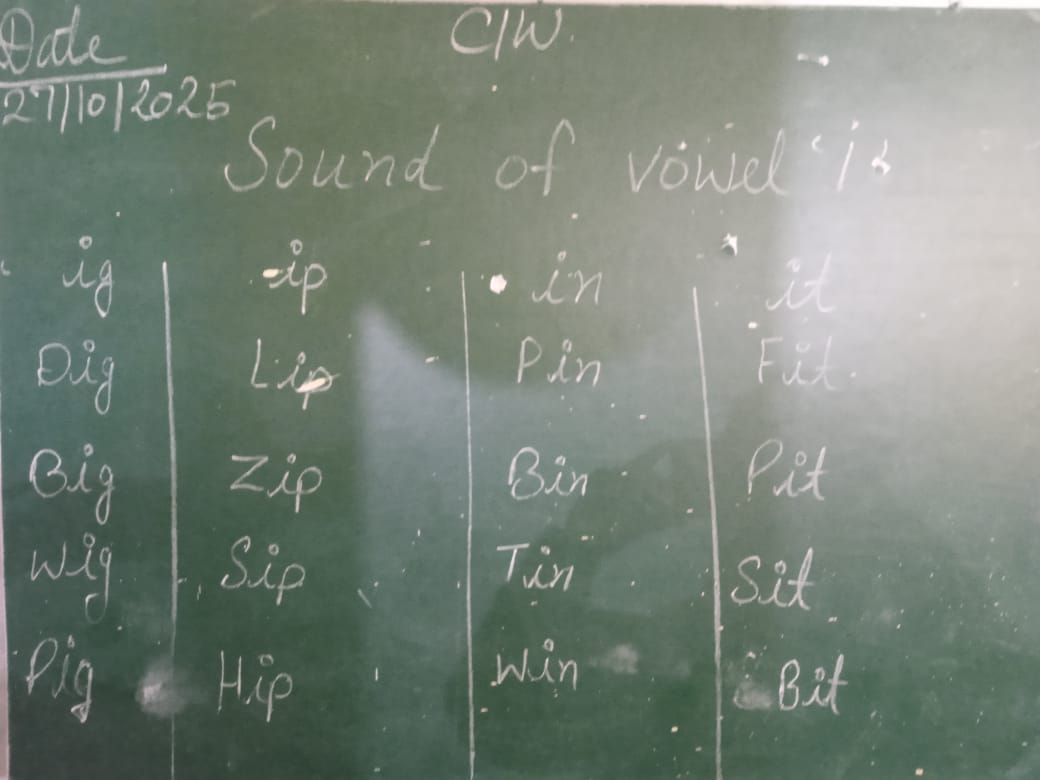 Date
C/W.
27/10/2025
Sound of vowel 'i'
ig ip in it
Dig Lip Pin Fit
Big Zip Bin Pit
Wig Sip Tin Sit
Pig Hip Win Bit